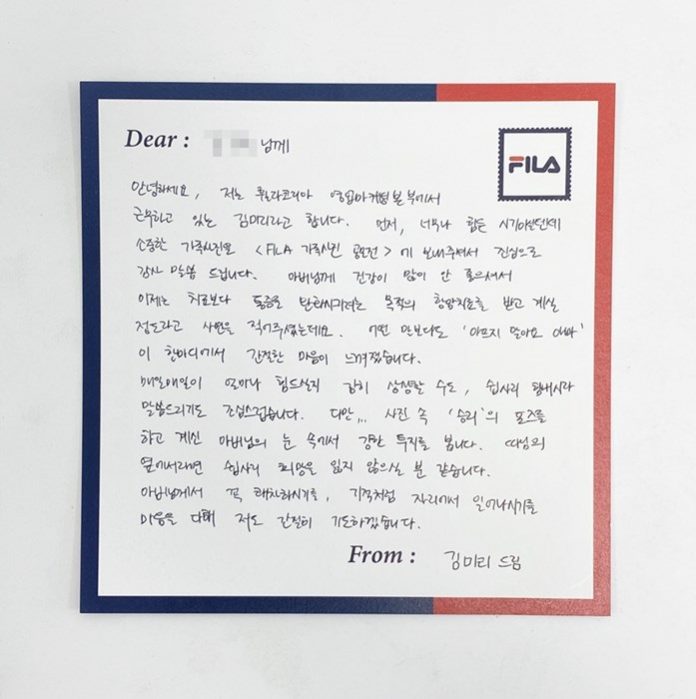 Dear : 님께
FILA
안녕하세요, 저는 휠라코리아 영업마케팅본부에서
근무하고 있는 김미리라고 합니다. 먼저, 너무나 힘든 시기이실텐데
소중한 가족사진을 <FILA 가족사진 공모전>에 보내주셔서 진심으로
감사 말씀 드립니다. 아버님께 건강이 많이 안 좋으셔서
이제는 치료보다 통증을 완화시키려는 목적의 항암치료를 받고 계실
정도라고 사연을 적어주셨는데요. 어떤 말보다도 '아프지 말아요 아빠'
이 한마디에서 간절한 마음이 느껴졌습니다.
매일매일이 얼마나 힘드실지 감히 상상할 수도, 쉽사리 힘내시라
말씀드리기도 조심스럽습니다. 다만,,, 사진 속 '승리'의 포즈를
하고 계신 아버님의 눈 속에서 강한 투지를 봅니다. 따님의
곁에서라면 쉽사리 희망을 잃지 않으실 분 같습니다.
아버님께서 꼭 쾌차하시기를, 기적처럼 자리에서 일어나시기를
마음을 다해 저도 간절히 기도하겠습니다.
From : 김미리 드림